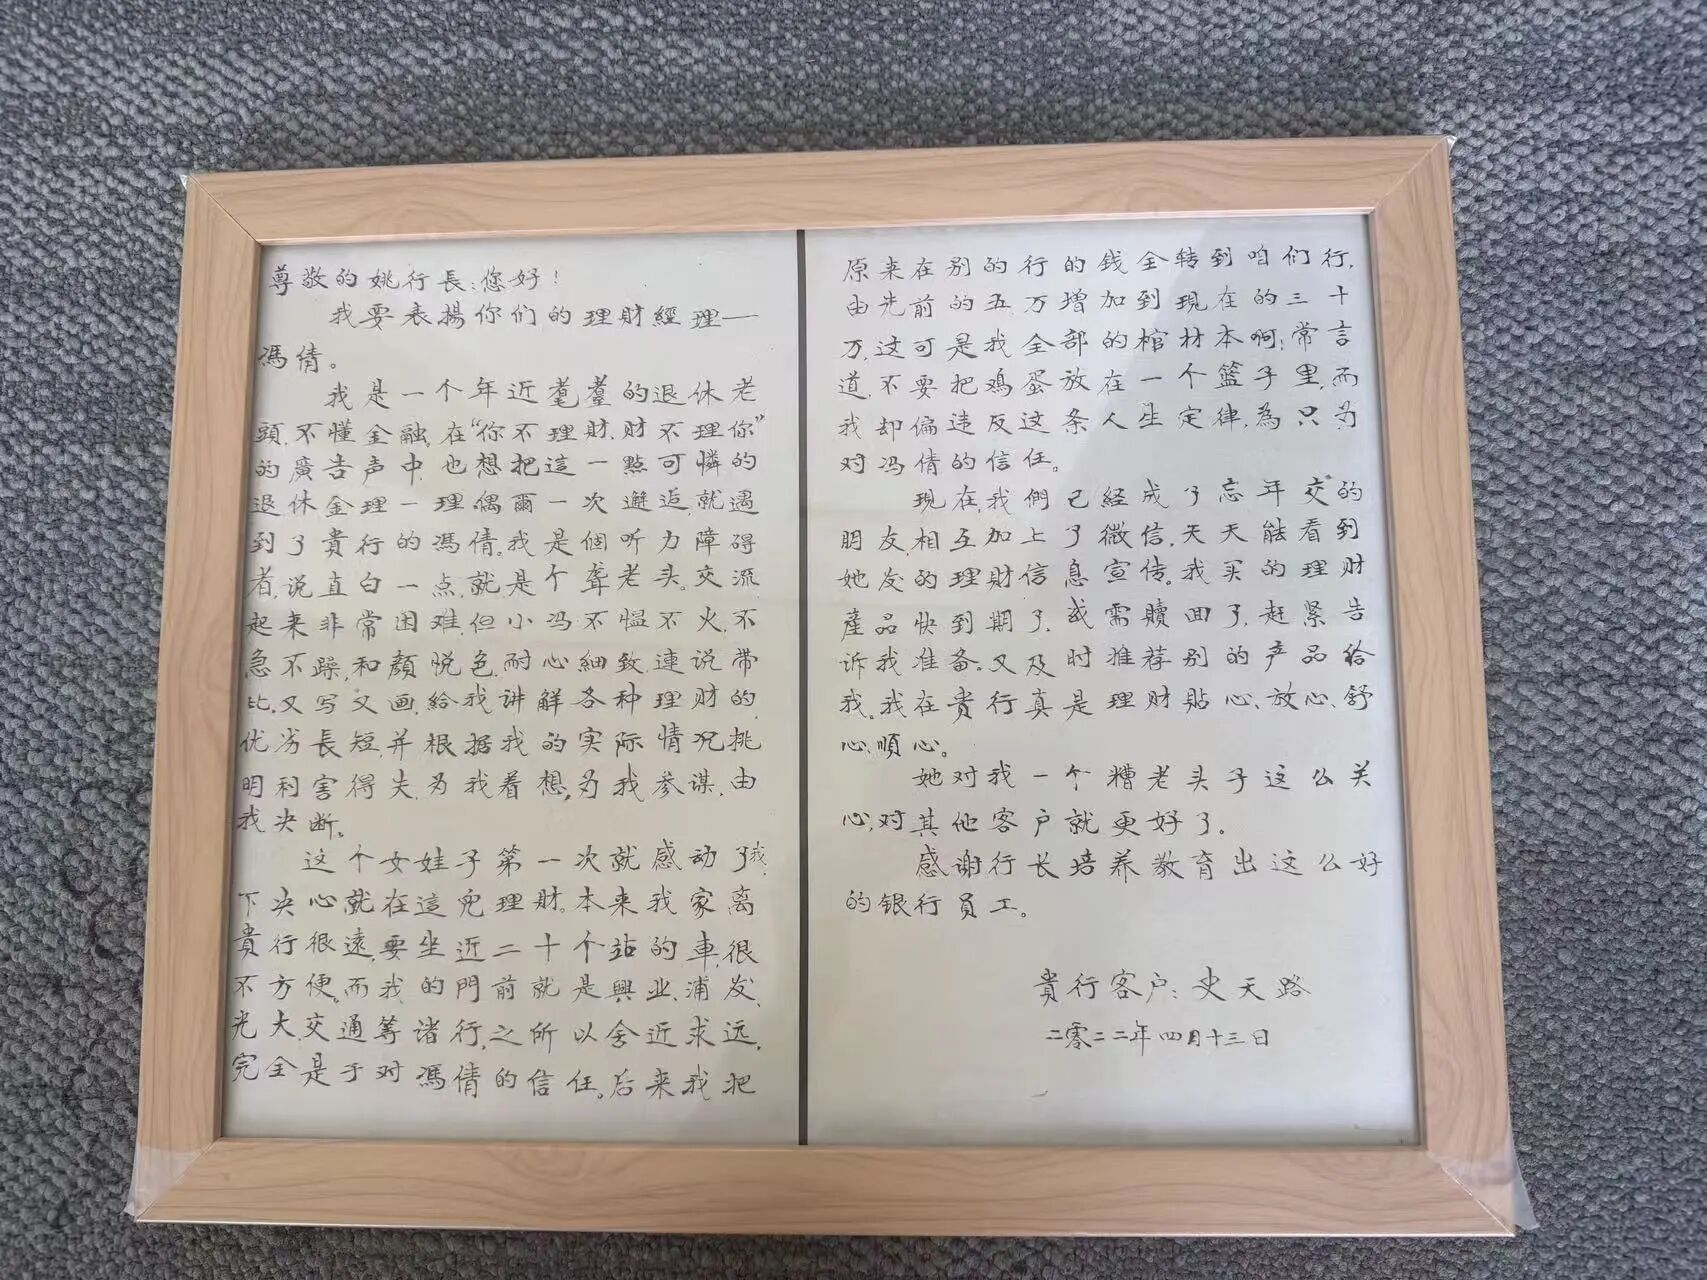 尊敬的姚行長:您好!
我要表揚你们的理財經理——
馮倩。
我是一个年近耄耋的退休老
頭,不懂金融。在“你不理財,財不理你”
的廣告声中,也想把這一點可憐的
退休金理一理。偶爾一次邂逅,就遇
到了貴行的馮倩。我是個听力障碍
者,说直白一点,就是个聋老头。交流
起来非常困难,但小冯不愠不火,不
急不躁,和顏悦色,耐心細致,連说带
比,又写又画,給我讲解各种理財的,
优劣長短,并根据我的实际情况挑
明利害得失,为我着想,为我参谋,由
我决断。
这个女娃子第一次就感动了我,
下决心就在這兒理財。本来我家离
貴行很遠,要坐近二十个站的車,很
不方便。而我的門前就是興业、浦发、
光大、交通等诸行,之所以舍近求远,
完全是于对馮倩的信任。后来我把
原来在别的行的錢全转到咱们行,
由先前的五万增加到現在的三十
万,这可是我全部的棺材本啊;常言
道,不要把鸡蛋放在一个籃子里,而
我却偏违反这条人生定律,為只为
对冯倩的信任。
現在我們已經成了忘年交的
朋友,相互加上了微信,天天能看到
她发的理財信息宣传。我买的理财
產品快到期了,或需赎回了,赶紧告
诉我准备,又及时推荐别的产品给
我。我在貴行真是理財貼心、放心、舒
心、順心。
她对我一个糟老头子这么关
心,对其他客户就更好了。
感谢行长培养教育出这么好
的银行员工。
貴行客户:史天路
二零二二年四月十三日